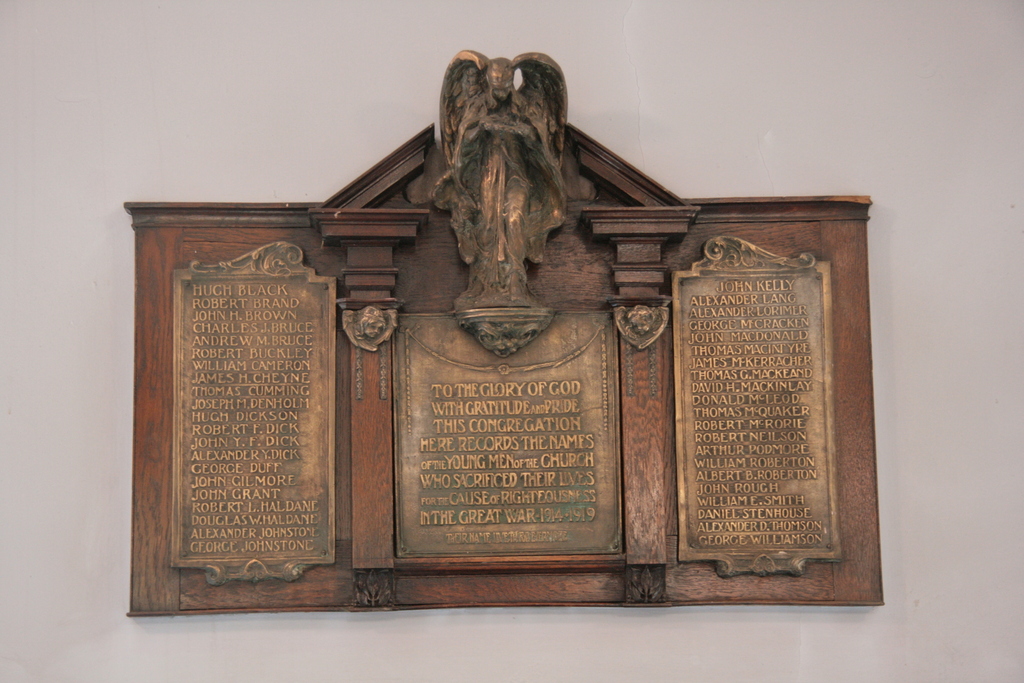 HUGH BLACK
ROBERT BRAND
JOHN H. BROWN
CHARLES J. BRUCE
ANDREW M. BRUCE
ROBERT BUCKLEY
WILLIAM CAMERON
JAMES H. CHEYNE
THOMAS CUMMING
JOSEPH M. DENHOLM
HUGH DICKSON
ROBERT F. DICK
JOHN Y. F. DICK
ALEXANDER Y. DICK
GEORGE DUFF
JOHN GILMORE
JOHN GRANT
ROBERT L. HALDANE
DOUGLAS W. HALDANE
ALEXANDER JOHNSTONE
GEORGE JOHNSTONE
TO THE GLORY OF GOD
WITH GRATITUDE AND PRIDE
THIS CONGREGATION
HERE RECORDS THE NAMES
OF THE YOUNG MEN OF THE CHURCH
WHO SACRIFICED THEIR LIVES
FOR THE CAUSE OF RIGHTEOUSNESS
IN THE GREAT WAR · 1914 · 1919
THEIR NAME
JOHN KELLY
ALEXANDER LANG
ALEXANDER LORIMER
GEORGE McCRACKEN
JOHN MACDONALD
THOMAS MACINTYRE
JAMES McKERRACHER
THOMAS G. MACKEAND
DAVID H. MACKINLAY
DONALD McLEOD
THOMAS McQUAKER
ROBERT McRORIE
ROBERT NEILSON
ARTHUR PODMORE
WILLIAM ROBERTON
ALBERT B. ROBERTON
JOHN ROUGH
WILLIAM E. SMITH
DANIEL STENHOUSE
ALEXANDER D. THOMSON
GEORGE WILLIAMSON